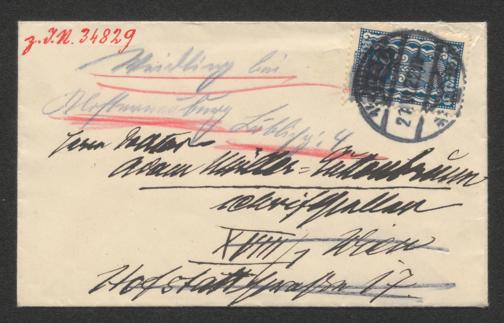 z. I.N. 34829
Weidling bei
Klosterneuburg
Herrn Doktor
Adam Müller-Guttenbrunn
Schriftsteller
XVIII/1 Wien
Hofstattgasse 17.